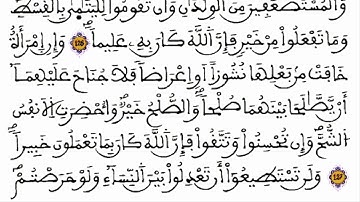 وَالْمُسْتَضْعَفِينَ مِنَ الْوِلْدَٰنِ وَأَن تَقُومُواْ لِلْيَتَٰمَىٰ بِالْقِسْطِ
وَمَا تَفْعَلُواْ مِنْ خَيْرٍ فَإِنَّ اللَّهَ كَانَ بِهِۦ عَلِيماً 126 وَإِنِ اِمْرَأَةٌ
خَافَتْ مِنۢ بَعْلِهَا نُشُوزاً أَوِ اِعْرَاضاً فَلَا جُنَاحَ عَلَيْهِمَا
أَنْ يَّصَّٰلَحَا بَيْنَهُمَا صُلْحاً وَالصُّلْحُ خَيْرٌ وَأُحْضِرَتِ الْأَنفُسُ
الشُّحَّ وَإِن تُحْسِنُواْ وَتَتَّقُواْ فَإِنَّ اللَّهَ كَانَ بِمَا تَعْمَلُونَ خَبِيراً
127 وَلَن تَسْتَطِيعُواْ أَن تَعْدِلُواْ بَيْنَ النِّسَآءِ وَلَوْ حَرَصْتُمْ